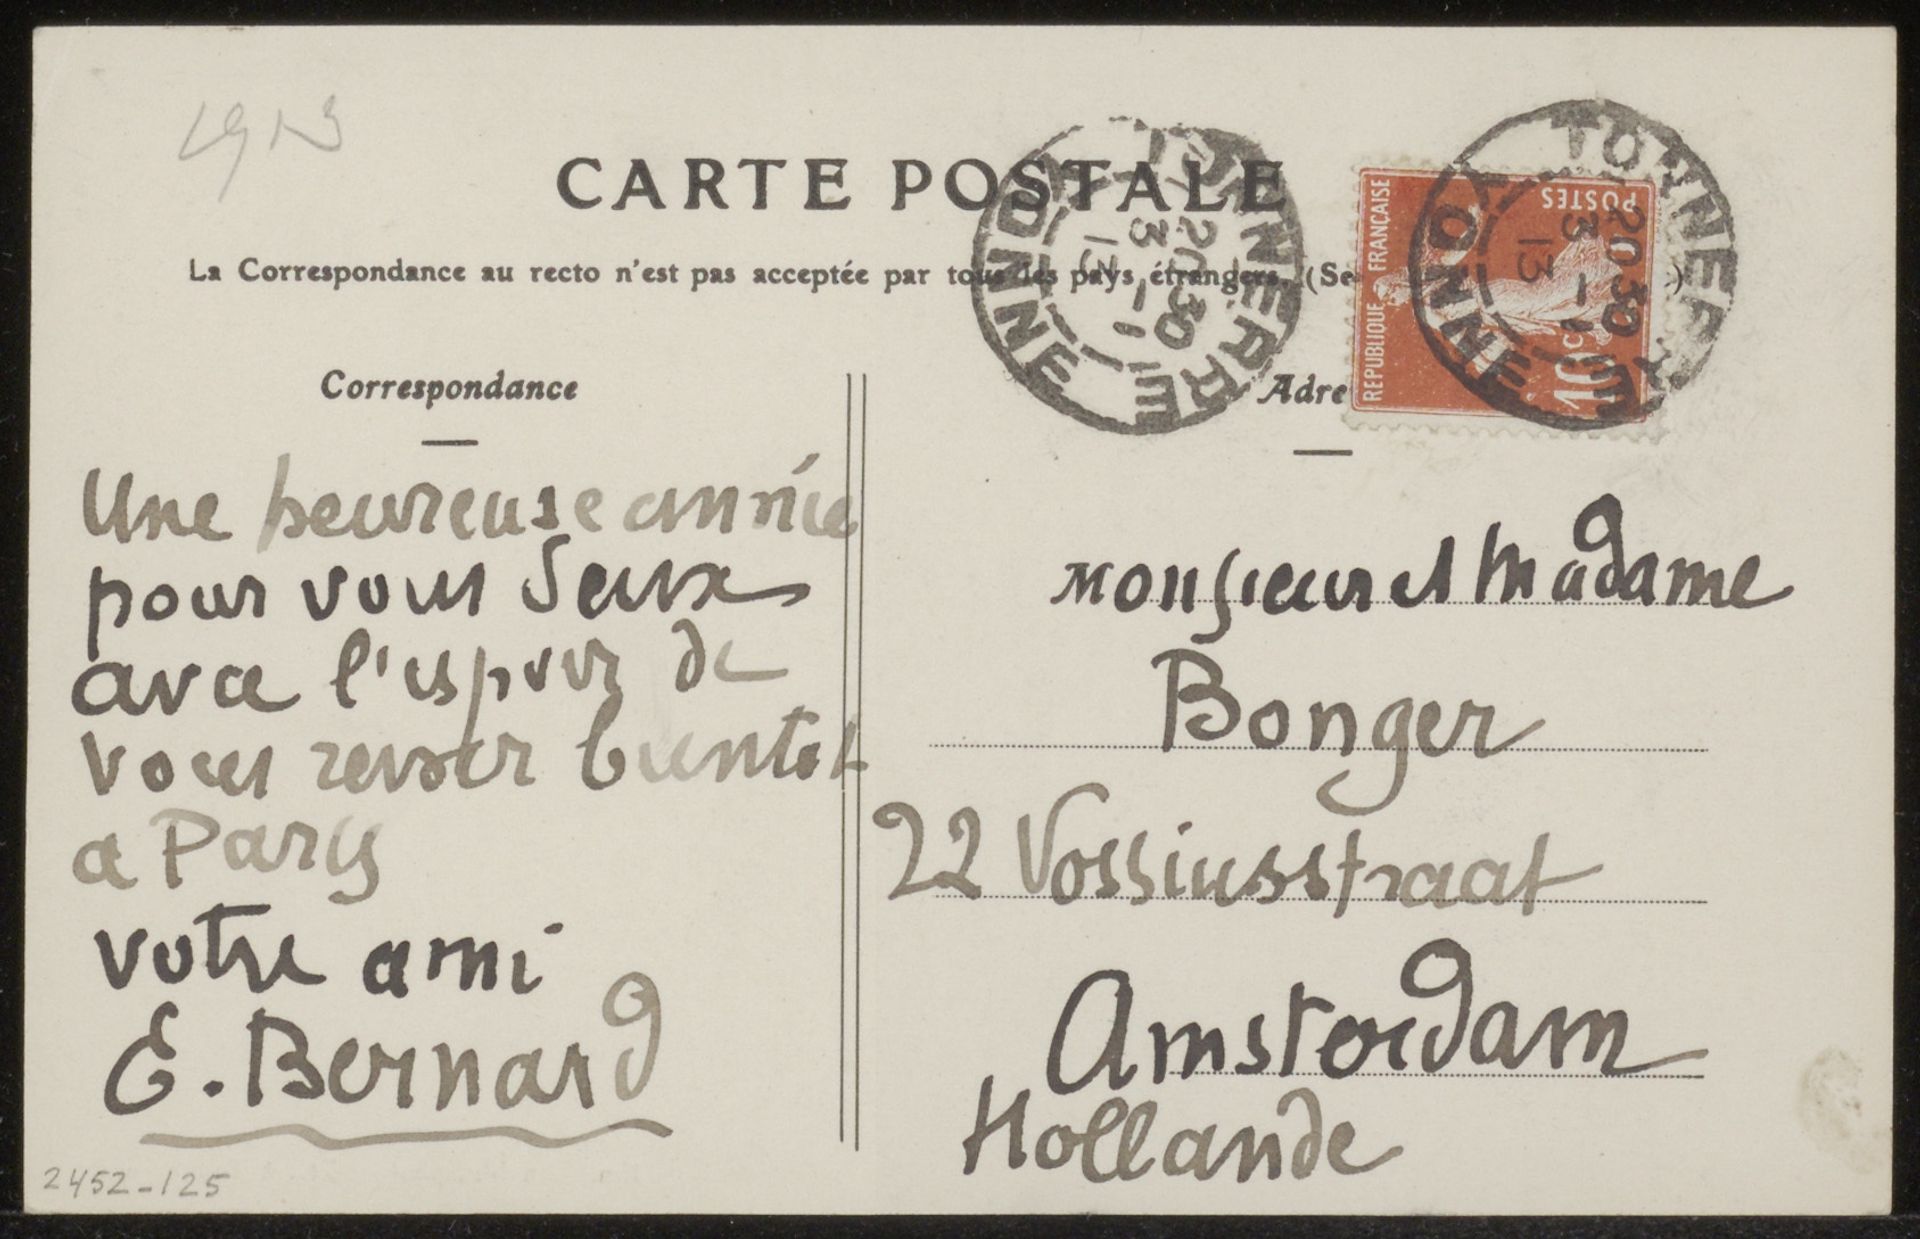 1913
CARTE POSTALE
La Correspondance au recto n'est pas acceptée par tous les pays étrangers. (Se
Correspondance
Adre
REPUBLIQUE FRANÇAISE
POSTES
10c
TONNERRE
YONNE
20 30
3 - 1
13
TONNERRE
YONNE
20 30
3 - 1
13
Une heureuse année
pour vous deux
avec l'espoir de
vous revoir bientot
a Parys
votre ami
E. Bernard
Monsieur et Madame
Bonger
22 Vossiusstraat
Amsterdam
Hollande
2452-125